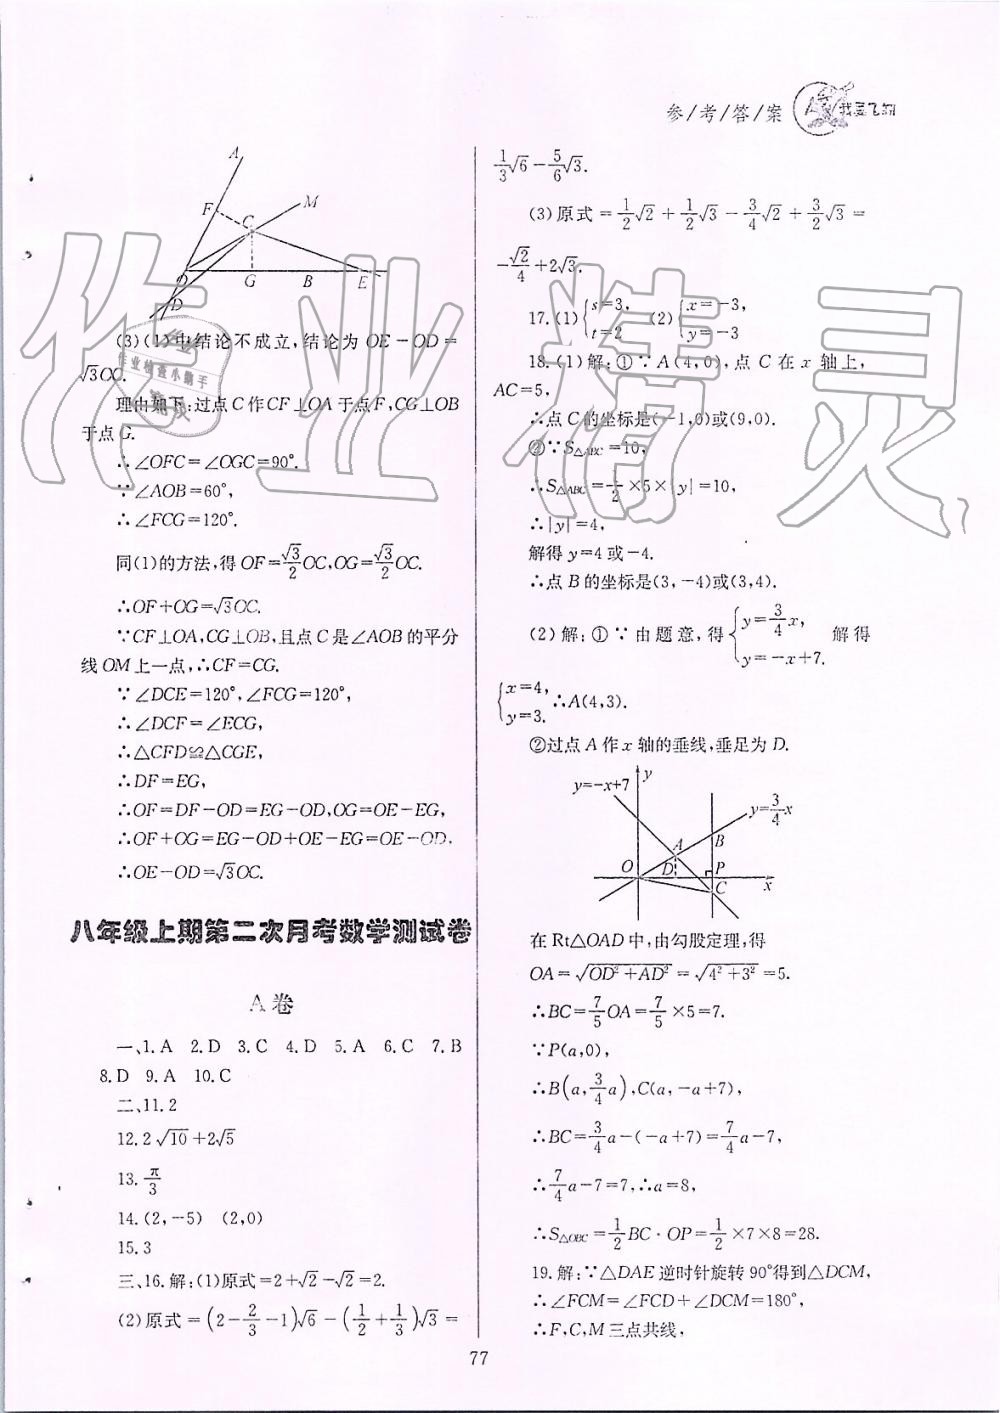 参/考/答/案
A
M
F
C
O
G
B
E
D
(3)(1)中结论不成立,结论为 OE－OD＝
√3OC.
理由如下:过点C作CF⊥OA于点F,CG⊥OB
于点G.
∴∠OFC＝∠OGC＝90°.
∵∠AOB＝60°,
∴∠FCG＝120°.
同(1)的方法,得 OF＝√3/2 OC,OG＝√3/2 OC.
∴OF＋OG＝√3OC.
∵CF⊥OA,CG⊥OB,且点C是∠AOB的平分
线OM上一点,∴CF＝CG.
∵∠DCE＝120°,∠FCG＝120°,
∴∠DCF＝∠ECG,
∴△CFD≌△CGE,
∴DF＝EG,
∴OF＝DF－OD＝EG－OD,OG＝OE－EG,
∴OF＋OG＝EG－OD＋OE－EG＝OE－OD,
∴OE－OD＝√3OC.
八年级上期第二次月考数学测试卷
A卷
一、1.A 2.D 3.C 4.D 5.A 6.C 7.B
8.D 9.A 10.C
二、11.2
12.2√10＋2√5
13.π/3
14.(2,－5) (2,0)
15.3
三、16.解:(1)原式＝2＋√2－√2＝2.
(2)原式＝(2－2/3－1)√6－(1/2＋1/3)√3＝
1/3√6－5/6√3.
(3)原式＝1/2√2＋1/2√3－3/4√2＋3/2√3＝
－√2/4＋2√3.
17.(1){s＝3, t＝2 (2){x＝－3, y＝－3
18.(1)解:①∵A(4,0),点 C 在 x 轴上,
AC＝5,
∴点C的坐标是(－1,0)或(9,0).
②∵S△ABC＝10,
∴S△ABC＝1/2×5×|y|＝10,
∴|y|＝4,
解得y＝4或－4.
∴点B的坐标是(3,－4)或(3,4).
(2)解:①∵由题意,得{y＝3/4x, y＝－x＋7. 解得
{x＝4, y＝3. ∴A(4,3).
②过点A作x轴的垂线,垂足为D.
y=－x+7
y
y=3/4x
A
B
O
D
P
x
C
在Rt△OAD中,由勾股定理,得
OA＝√OD²＋AD²＝√4²＋3²＝5.
∴BC＝7/5OA＝7/5×5＝7.
∵P(a,0),
∴B(a,3/4a),C(a,－a＋7),
∴BC＝3/4a－(－a＋7)＝7/4a－7,
∴7/4a－7＝7,∴a＝8,
∴S△OBC＝1/2BC·OP＝1/2×7×8＝28.
19.解:∵△DAE逆时针旋转90°得到△DCM,
∴∠FCM＝∠FCD＋∠DCM＝180°,
∴F,C,M三点共线,
77
作业精灵
作业检查小助手